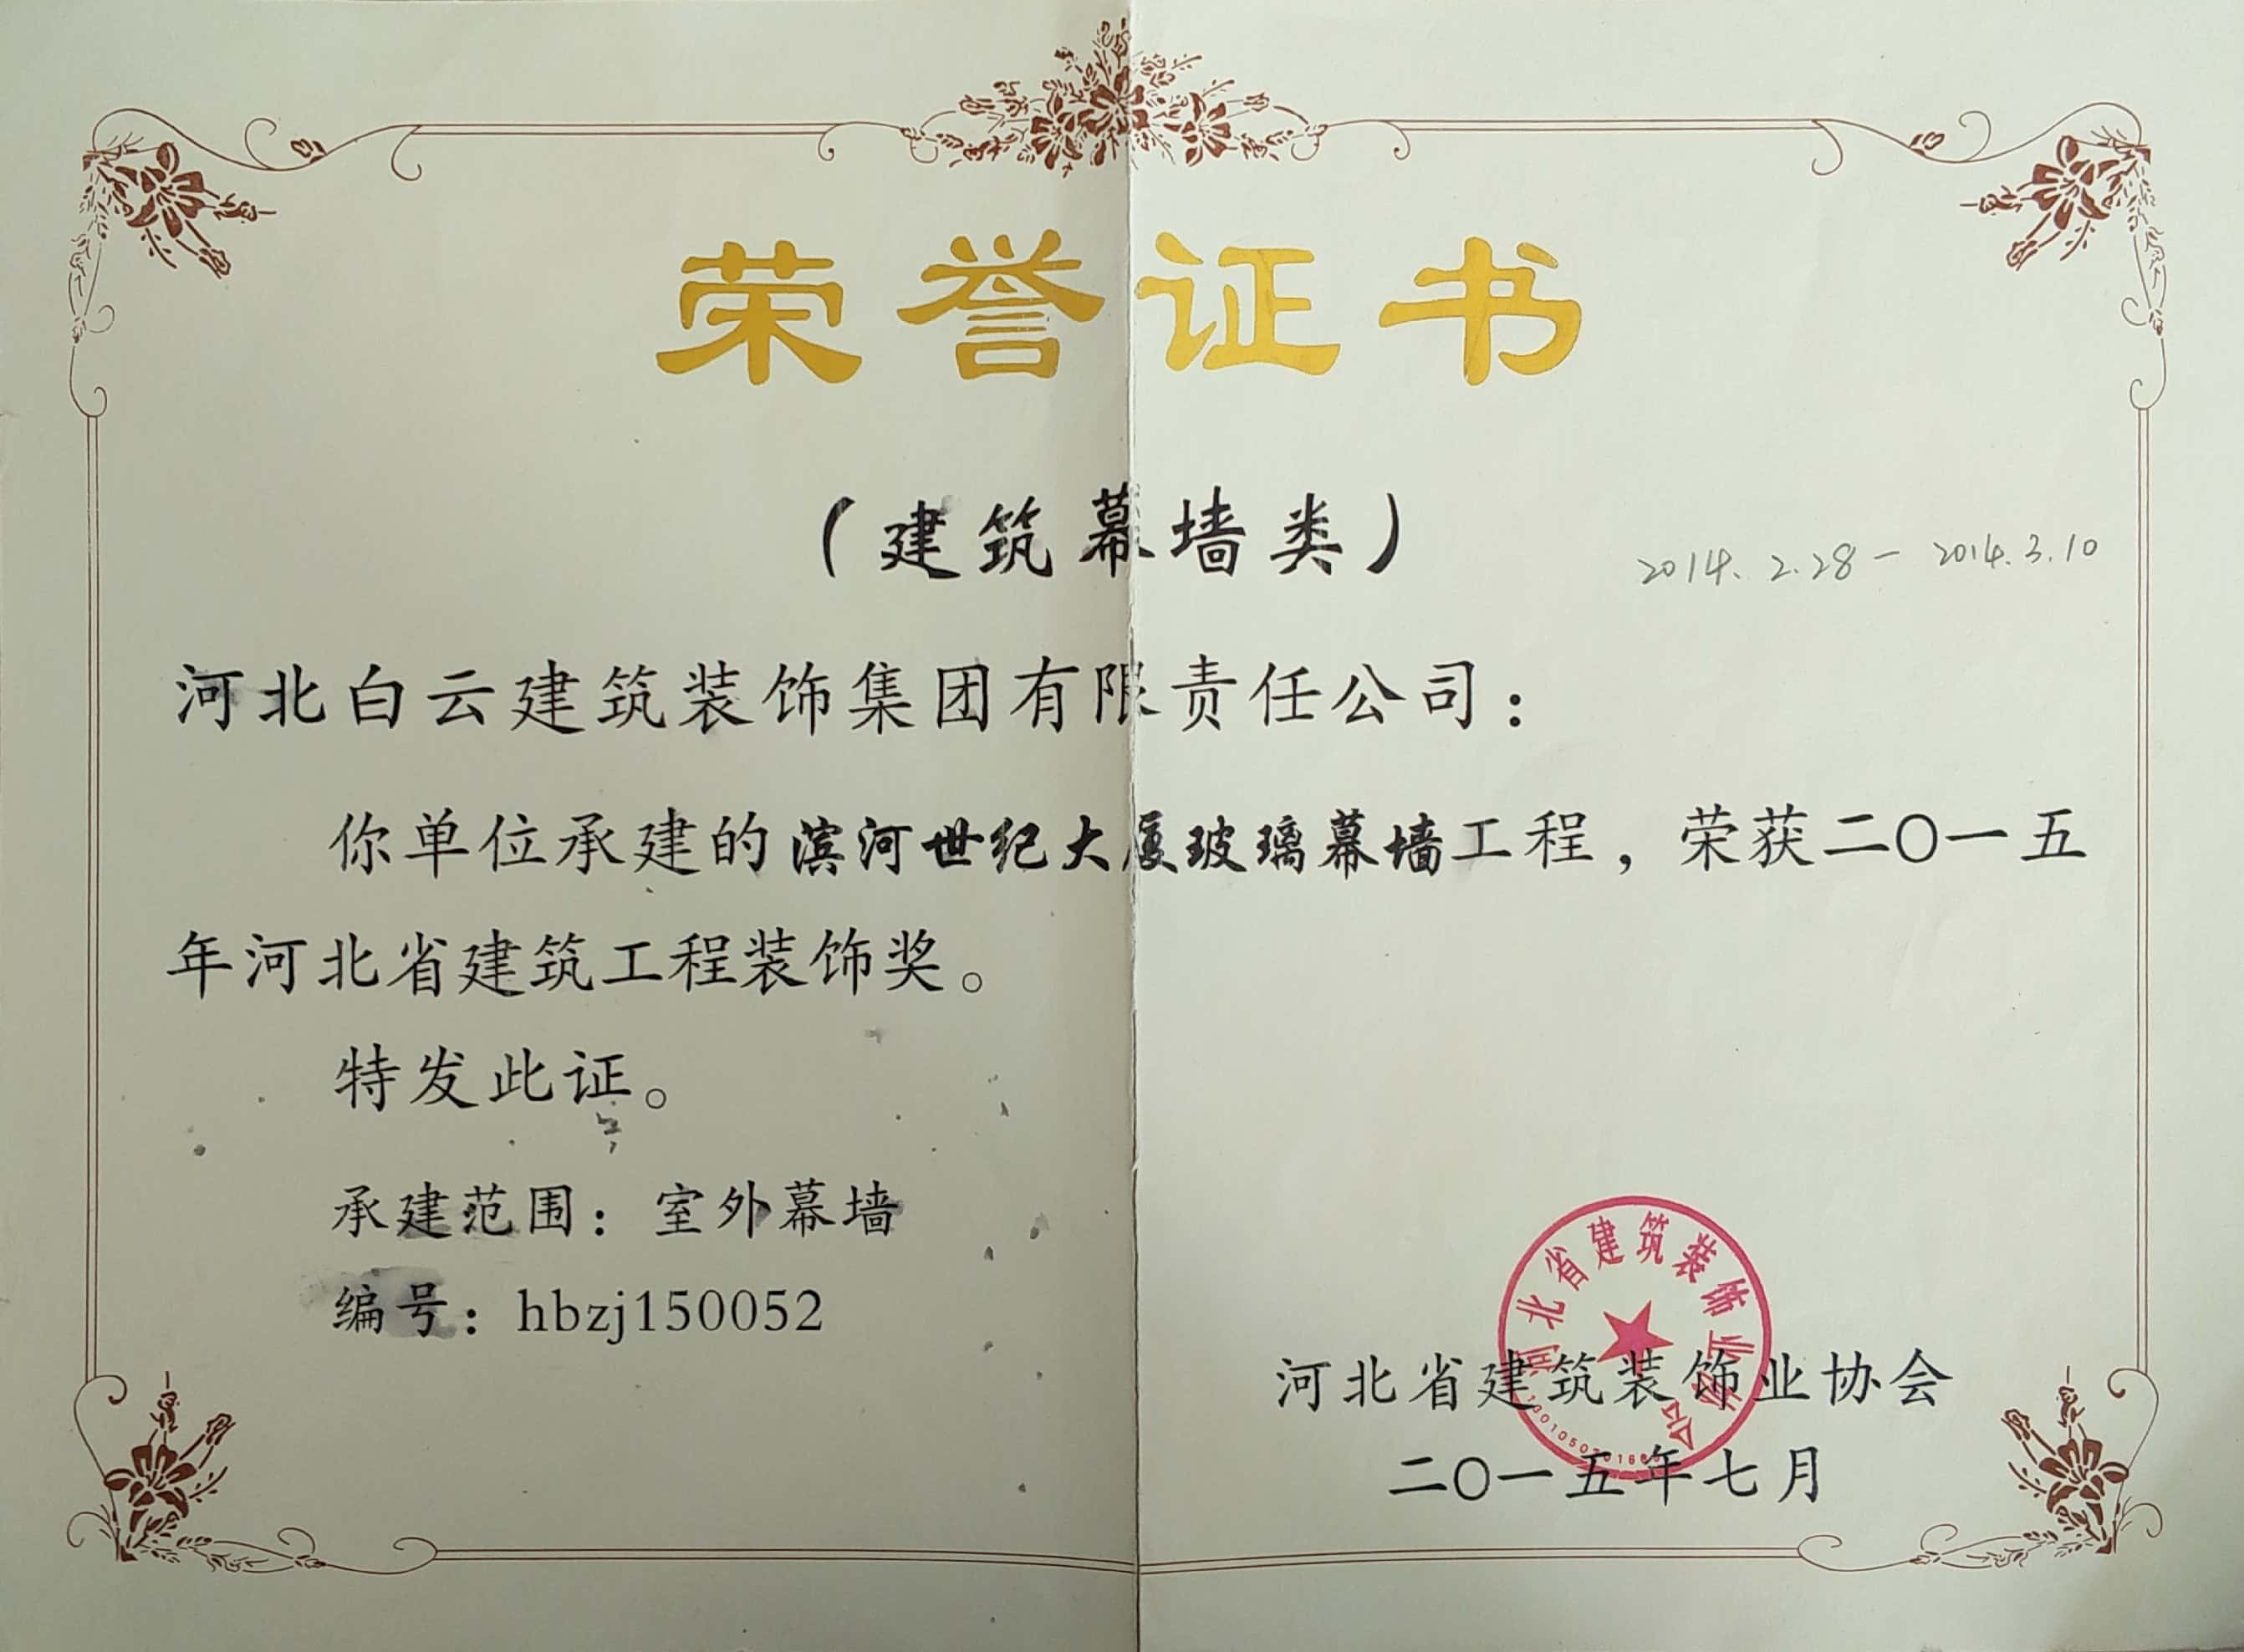 荣誉证书
（建筑幕墙类）
2014.2.28－2014.3.10
河北白云建筑装饰集团有限责任公司：
你单位承建的滨河世纪大厦玻璃幕墙工程，荣获二〇一五
年河北省建筑工程装饰奖。
特发此证。
承建范围：室外幕墙
编号：hbzj150052
河北省建筑装饰业协会
河北省建筑装饰业协会
二〇一五年七月